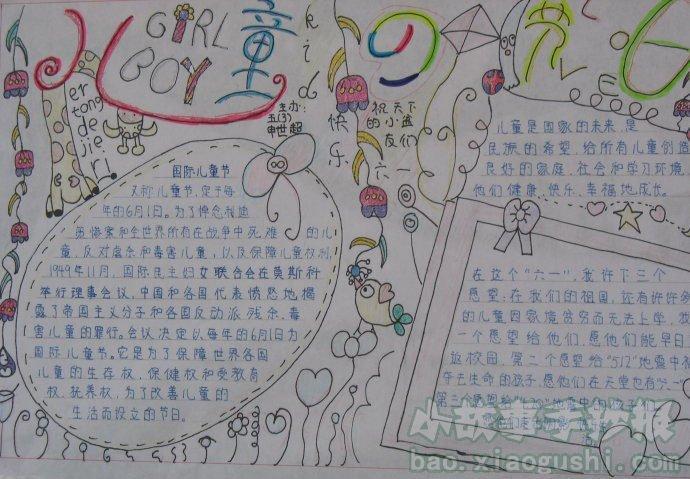 儿童の节日
GIRL
BOY
kid
er
tong
de
jie
ri
主办:
五(3)
申世超
快乐
祝天下
的小盆
友们
六一
LOVE
国际儿童节
又称儿童节,定于每
年的6月1日。为了悼念利迪
策惨案和全世界所有在战争中死难的儿
童,反对虐杀和毒害儿童,以及保障儿童权利,
1949年11月,国际民主妇女联合会在莫斯科
举行理事会议,中国和各国代表愤怒地揭
露了帝国主义分子和各国反动派残杀、毒
害儿童的罪行。会议决定以每年的6月1日为
国际儿童节。它是为了保障世界各国
儿童的生存权、保健权和受教育
权、抚养权,为了改善儿童的
生活而设立的节日。
儿童是国家的未来,是
民族的希望,给所有儿童创造
良好的家庭、社会和学习环境
他们健康、快乐、幸福地成长。
在这个"六一",我许下三个
愿望:在我们的祖国,还有许许多
的儿童因家境贫穷而无法上学,我
一个愿望给他们,愿他们能早日
返校园。第二个愿望给"512"地震中被
夺去生命的孩子,愿他们在天堂也有"六一"
第三个愿望给
地震中的
小故事手抄报
bao.xiaogushi.com